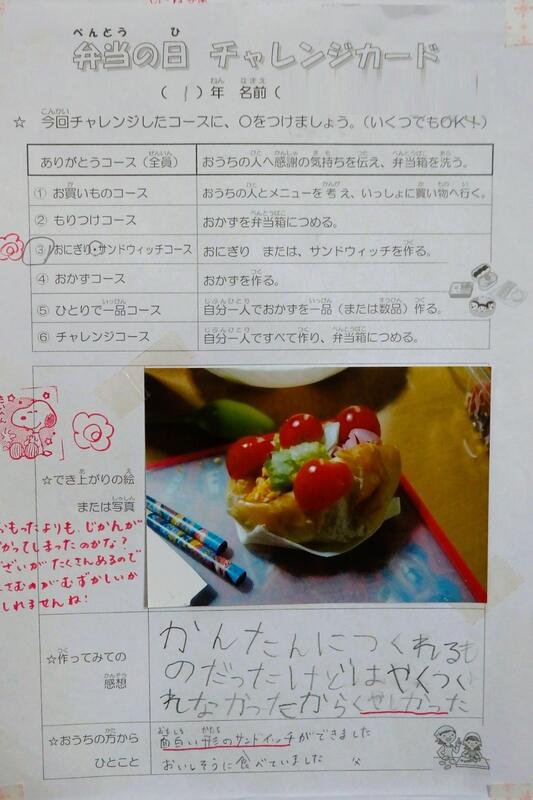 弁当の日 チャレンジカード
(1)年 名前(
☆ 今回チャレンジしたコースに、○をつけましょう。(いくつでもOK!)
ありがとうコース(全員) おうちの人へ感謝の気持ちを伝え、弁当箱を洗う。
① お買いものコース おうちの人とメニューを考え、いっしょに買い物へ行く。
② もりつけコース おかずを弁当箱につめる。
③ おにぎり・サンドウィッチコース おにぎり または、サンドウィッチを作る。
④ おかずコース おかずを作る。
⑤ ひとりで一品コース 自分一人でおかずを一品(または数品)作る。
⑥ チャレンジコース 自分一人ですべて作り、弁当箱につめる。
☆でき上がりの絵
または写真
おもったよりも、じかんが
かかってしまったのかな?
ぐざいがたくさんあるので
はさむのがむずかしいか
もしれませんね!
☆作ってみての
感想
かんたんにつくれるも
のだったけどはやくつく
れなかったからくやしかった
☆おうちの方から
ひとこと
面白い形のサンドイッチができました
おいしそうに食べていました 父